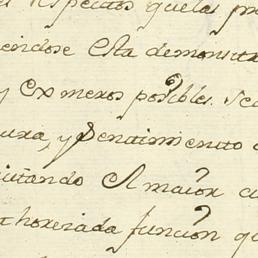 respectos quelas pr
endose Esta demonstra
y Exmeros posibles. Sea
ura, y Sentimiento
utando El maior cu
thoreada función qu